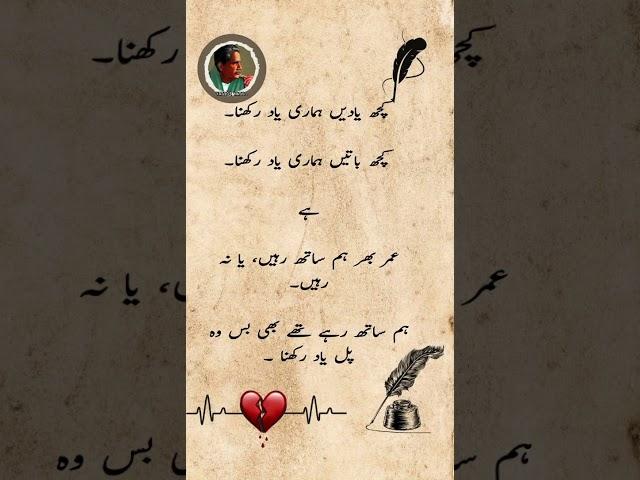 کچھ یادیں ہماری یاد رکھنا۔
کچھ باتیں ہماری یاد رکھنا۔
ہے
عمر بھر ہم ساتھ رہیں، یا نہ
رہیں۔
ہم ساتھ رہے تھے بھی بس وہ
پل یاد رکھنا ۔